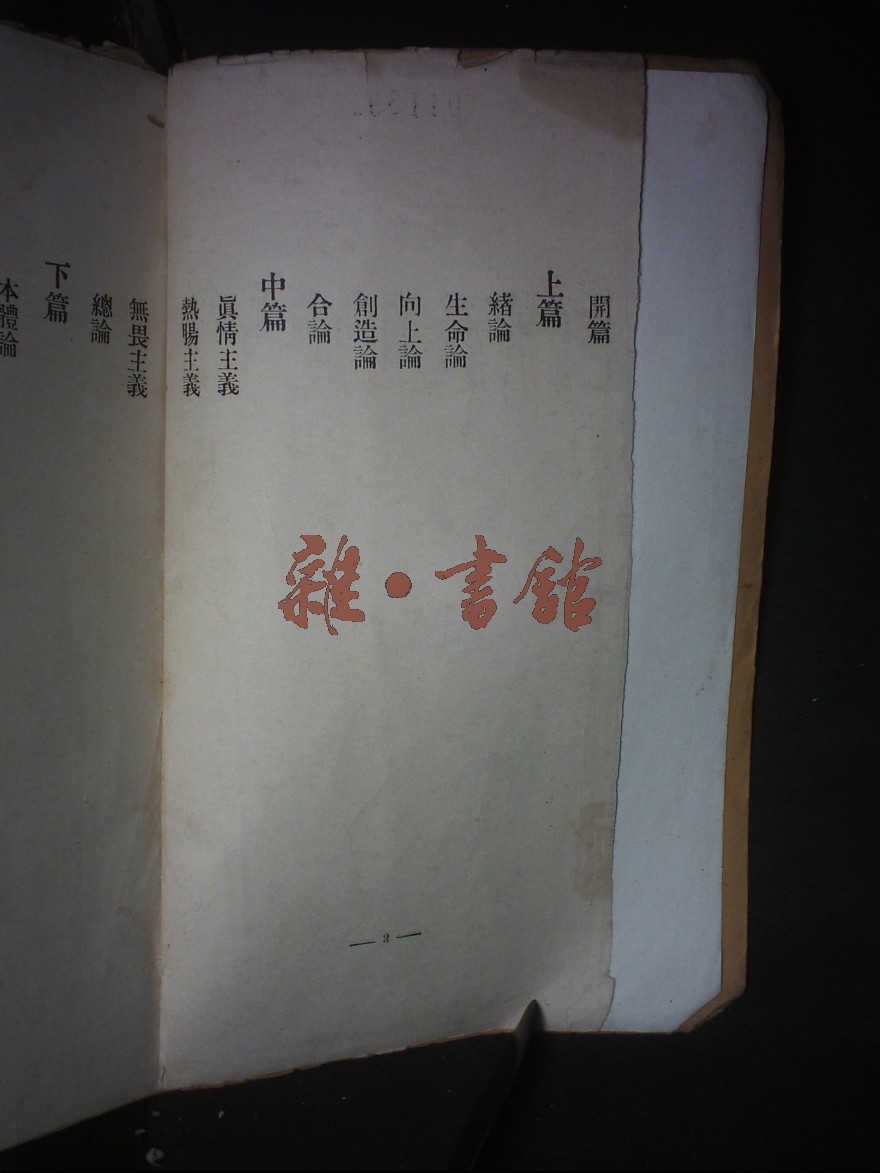 開篇
上篇
緒論
生命論
向上論
創造論
合論
中篇
眞情主義
熱腸主義
無畏主義
總論
下篇
本體論
雜·書館
— 2 —